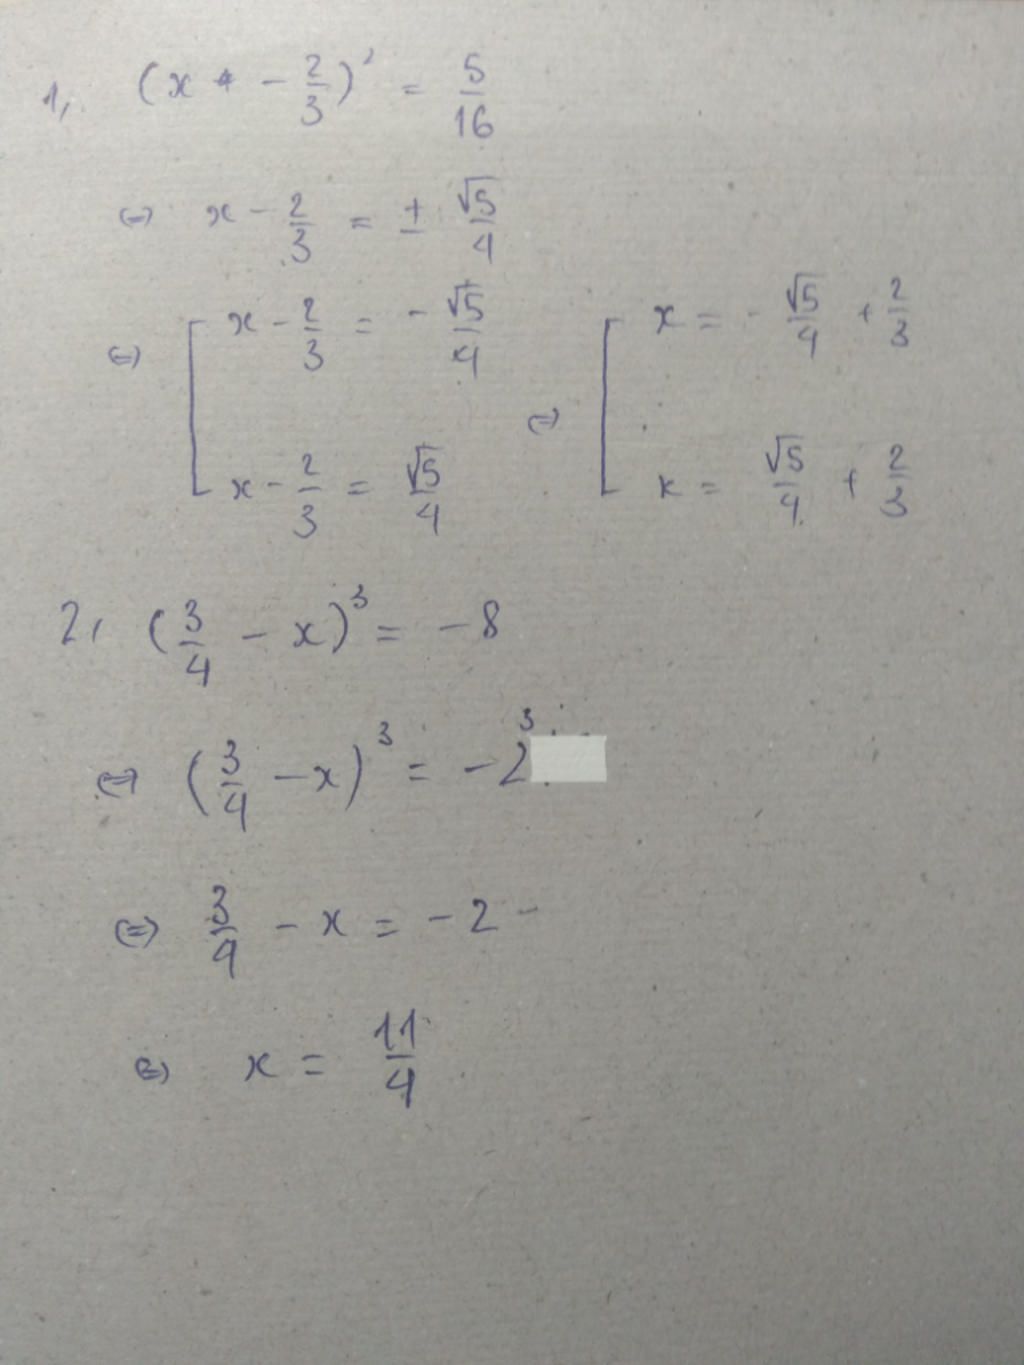 1, (x - 2/3)² = 5/16
⇔ x - 2/3 = ± √5/4
⇔ [ x - 2/3 = - √5/4
x - 2/3 = √5/4
⇔ [ x = - √5/4 + 2/3
x = √5/4 + 2/3
2, (3/4 - x)³ = -8
⇔ (3/4 - x)³ = -2³
⇔ 3/4 - x = -2
⇔ x = 11/4